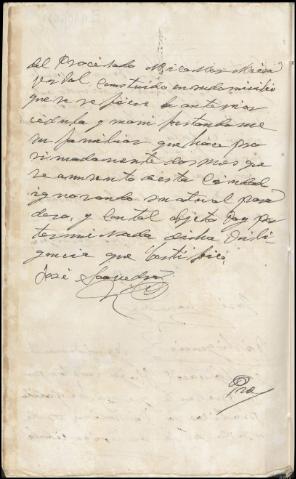 del Procesado Nicasio Mier
Vidal constituido en su domicilio
que se refiere la anterior
cédula y manifestandome
su familia que hace pro
simadamente dos mes que
se aumento de esta Ciudad
ignorando su atual para
dero, y con tal objeto doy por
terminada dicha Dili
gencia que Certifico,
José Saavedra